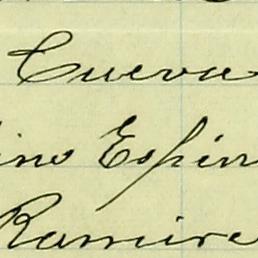 Cueva
ino Espin
Ramire